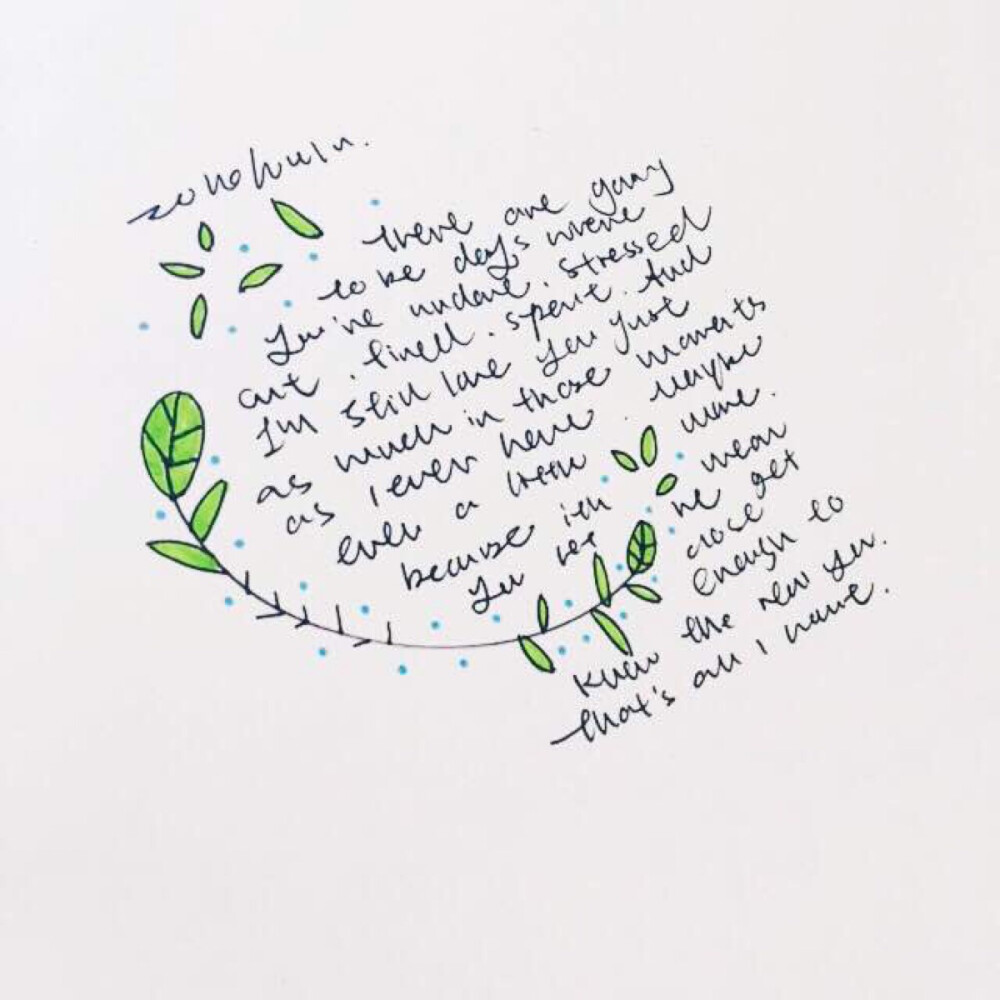 there are gony
to be days where
You've undone. stressed
out. tired. spent. And
I'm still love you just
as much in those moments
as I ever have. Maybe
even a little more.
because it'll mean
you let me get
close enough to
know the real you.
that's all I have.